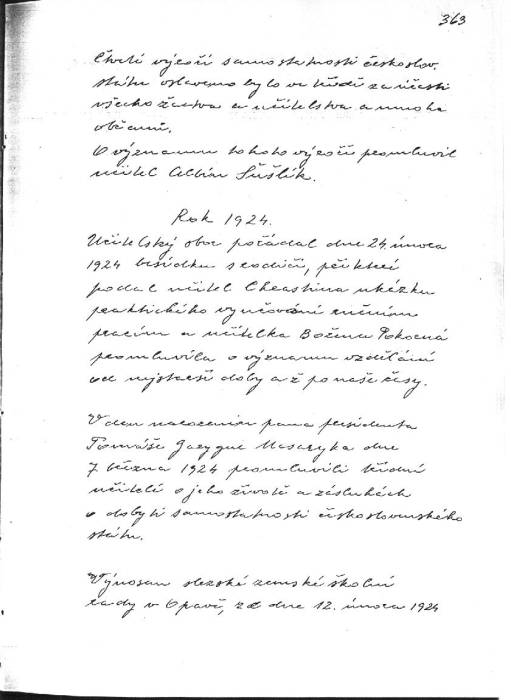 363
Čtvrté výročí samostatnosti českoslov.
státu oslaveno bylo ve třídě za účasti
všeho žactva a učitelstva a mnoha
občanů.
O významu tohoto výročí promluvil
učitel Albín Šušlík.
Rok 1924.
Učitelský sbor pořádal dne 24. února
1924 besídku s rodiči, při které
podal učitel ukázku
praktického vyučování ručním
pracím a učitelka Božena Pokorná
promluvila o významu vzdělání
od nejstarší doby až po naše časy.
V den narozenin pana presidenta
Tomáše Garygue Masaryka dne
7 března 1924 promluvili třídní
učitelé o jeho životě a zásluhách
o dobytí samostatnosti československého
státu.
Výnosem slezské zemské školní
rady v Opavě, ze dne 12. února 1924